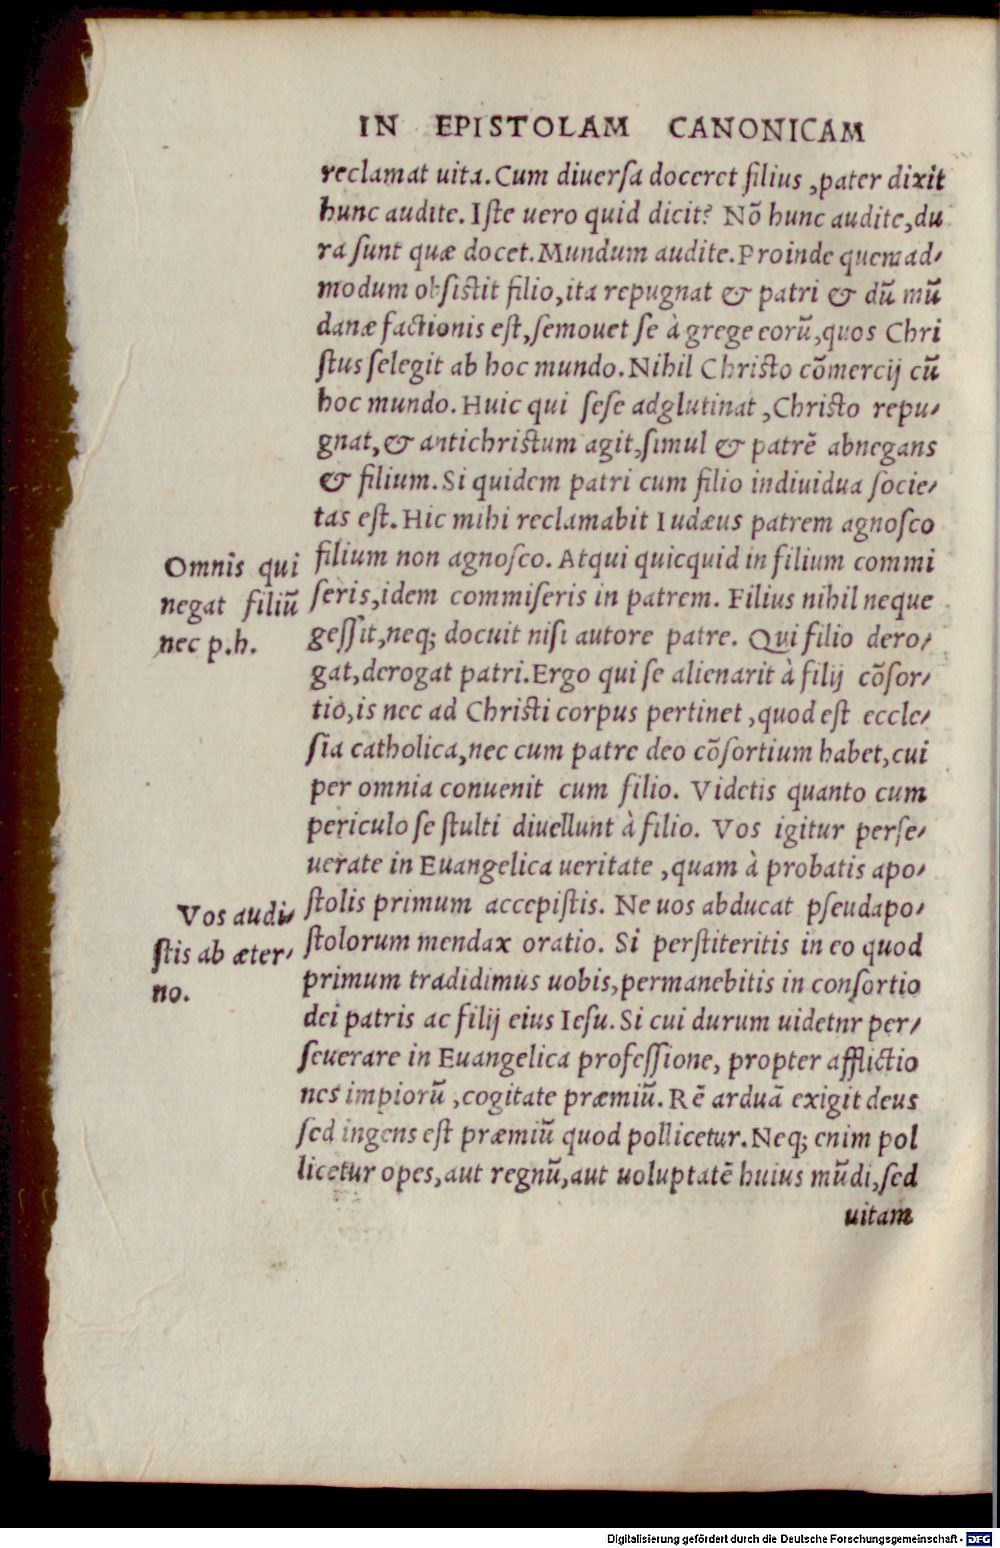 IN EPISTOLAM CANONICAM
reclamat uita. Cum diuerſa doceret filius, pater dixit
hunc audite. Iſte uero quid dicit? Nō hunc audite, du
ra ſunt quæ docet. Mundum audite. Proinde quemad⸗
modum obſiſtit filio, ita repugnat & patri & dū mū
danæ factionis eſt, ſemouet ſe à grege eorū, quos Chri
ſtus ſelegit ab hoc mundo. Nihil Chriſto cōmercij cū
hoc mundo. Huic qui ſeſe adglutinat, Chriſto repu⸗
gnat, & antichriſtum agit, ſimul & patrē abnegans
& filium. Si quidem patri cum filio indiuidua ſocie⸗
tas eſt. Hic mihi reclamabit Iudæus patrem agnoſco
filium non agnoſco. Atqui quicquid in filium commi
Omnis qui
negat filiū
nec p.h.
ſeris, idem commiſeris in patrem. Filius nihil neque
geſſit, neq; docuit niſi autore patre. Qui filio dero⸗
gat, derogat patri. Ergo qui ſe alienarit à filij cōſor⸗
tio, is nec ad Chriſti corpus pertinet, quod eſt eccle⸗
ſia catholica, nec cum patre deo cōſortium habet, cui
per omnia conuenit cum filio. Videtis quanto cum
periculo ſe ſtulti diuellunt à filio. Vos igitur perſe⸗
uerate in Euangelica ueritate, quam à probatis apo⸗
Vos audi⸗
ſtis ab æter⸗
no.
ſtolis primum accepiſtis. Ne uos abducat pſeudapo⸗
ſtolorum mendax oratio. Si perſtiteritis in eo quod
primum tradidimus uobis, permanebitis in conſortio
dei patris ac filij eius Ieſu. Si cui durum uidetnr per⸗
ſeuerare in Euangelica profeſſione, propter afflictio
nes impiorū, cogitate præmiū. Rē arduā exigit deus
ſed ingens eſt præmiū quod pollicetur. Neq; enim pol
licetur opes, aut regnū, aut uoluptatē huius mūdi, ſed
uitam
Digitalisierung gefördert durch die Deutsche Forschungsgemeinschaft - DFG